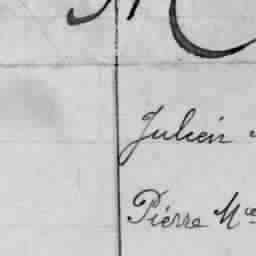 Julien
Pierre Mce